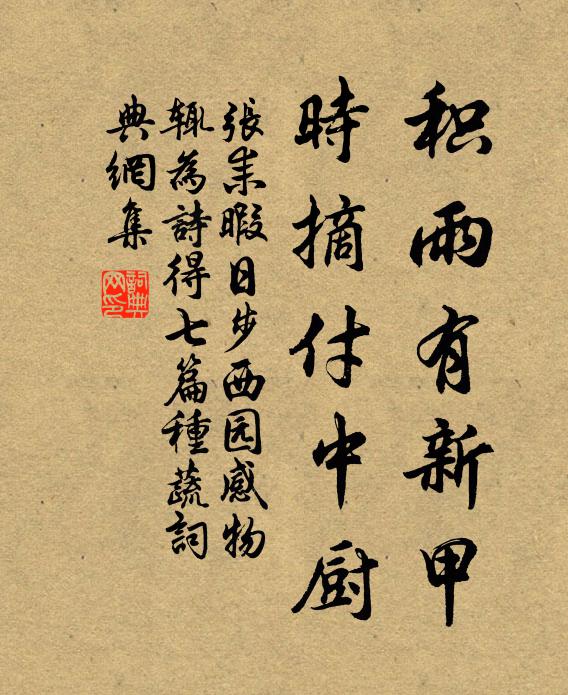 积雨有新甲
時摘付中厨
張耒暇日步西园感物
輒為詩得七篇種蔬詞
典網集
詞典
网印